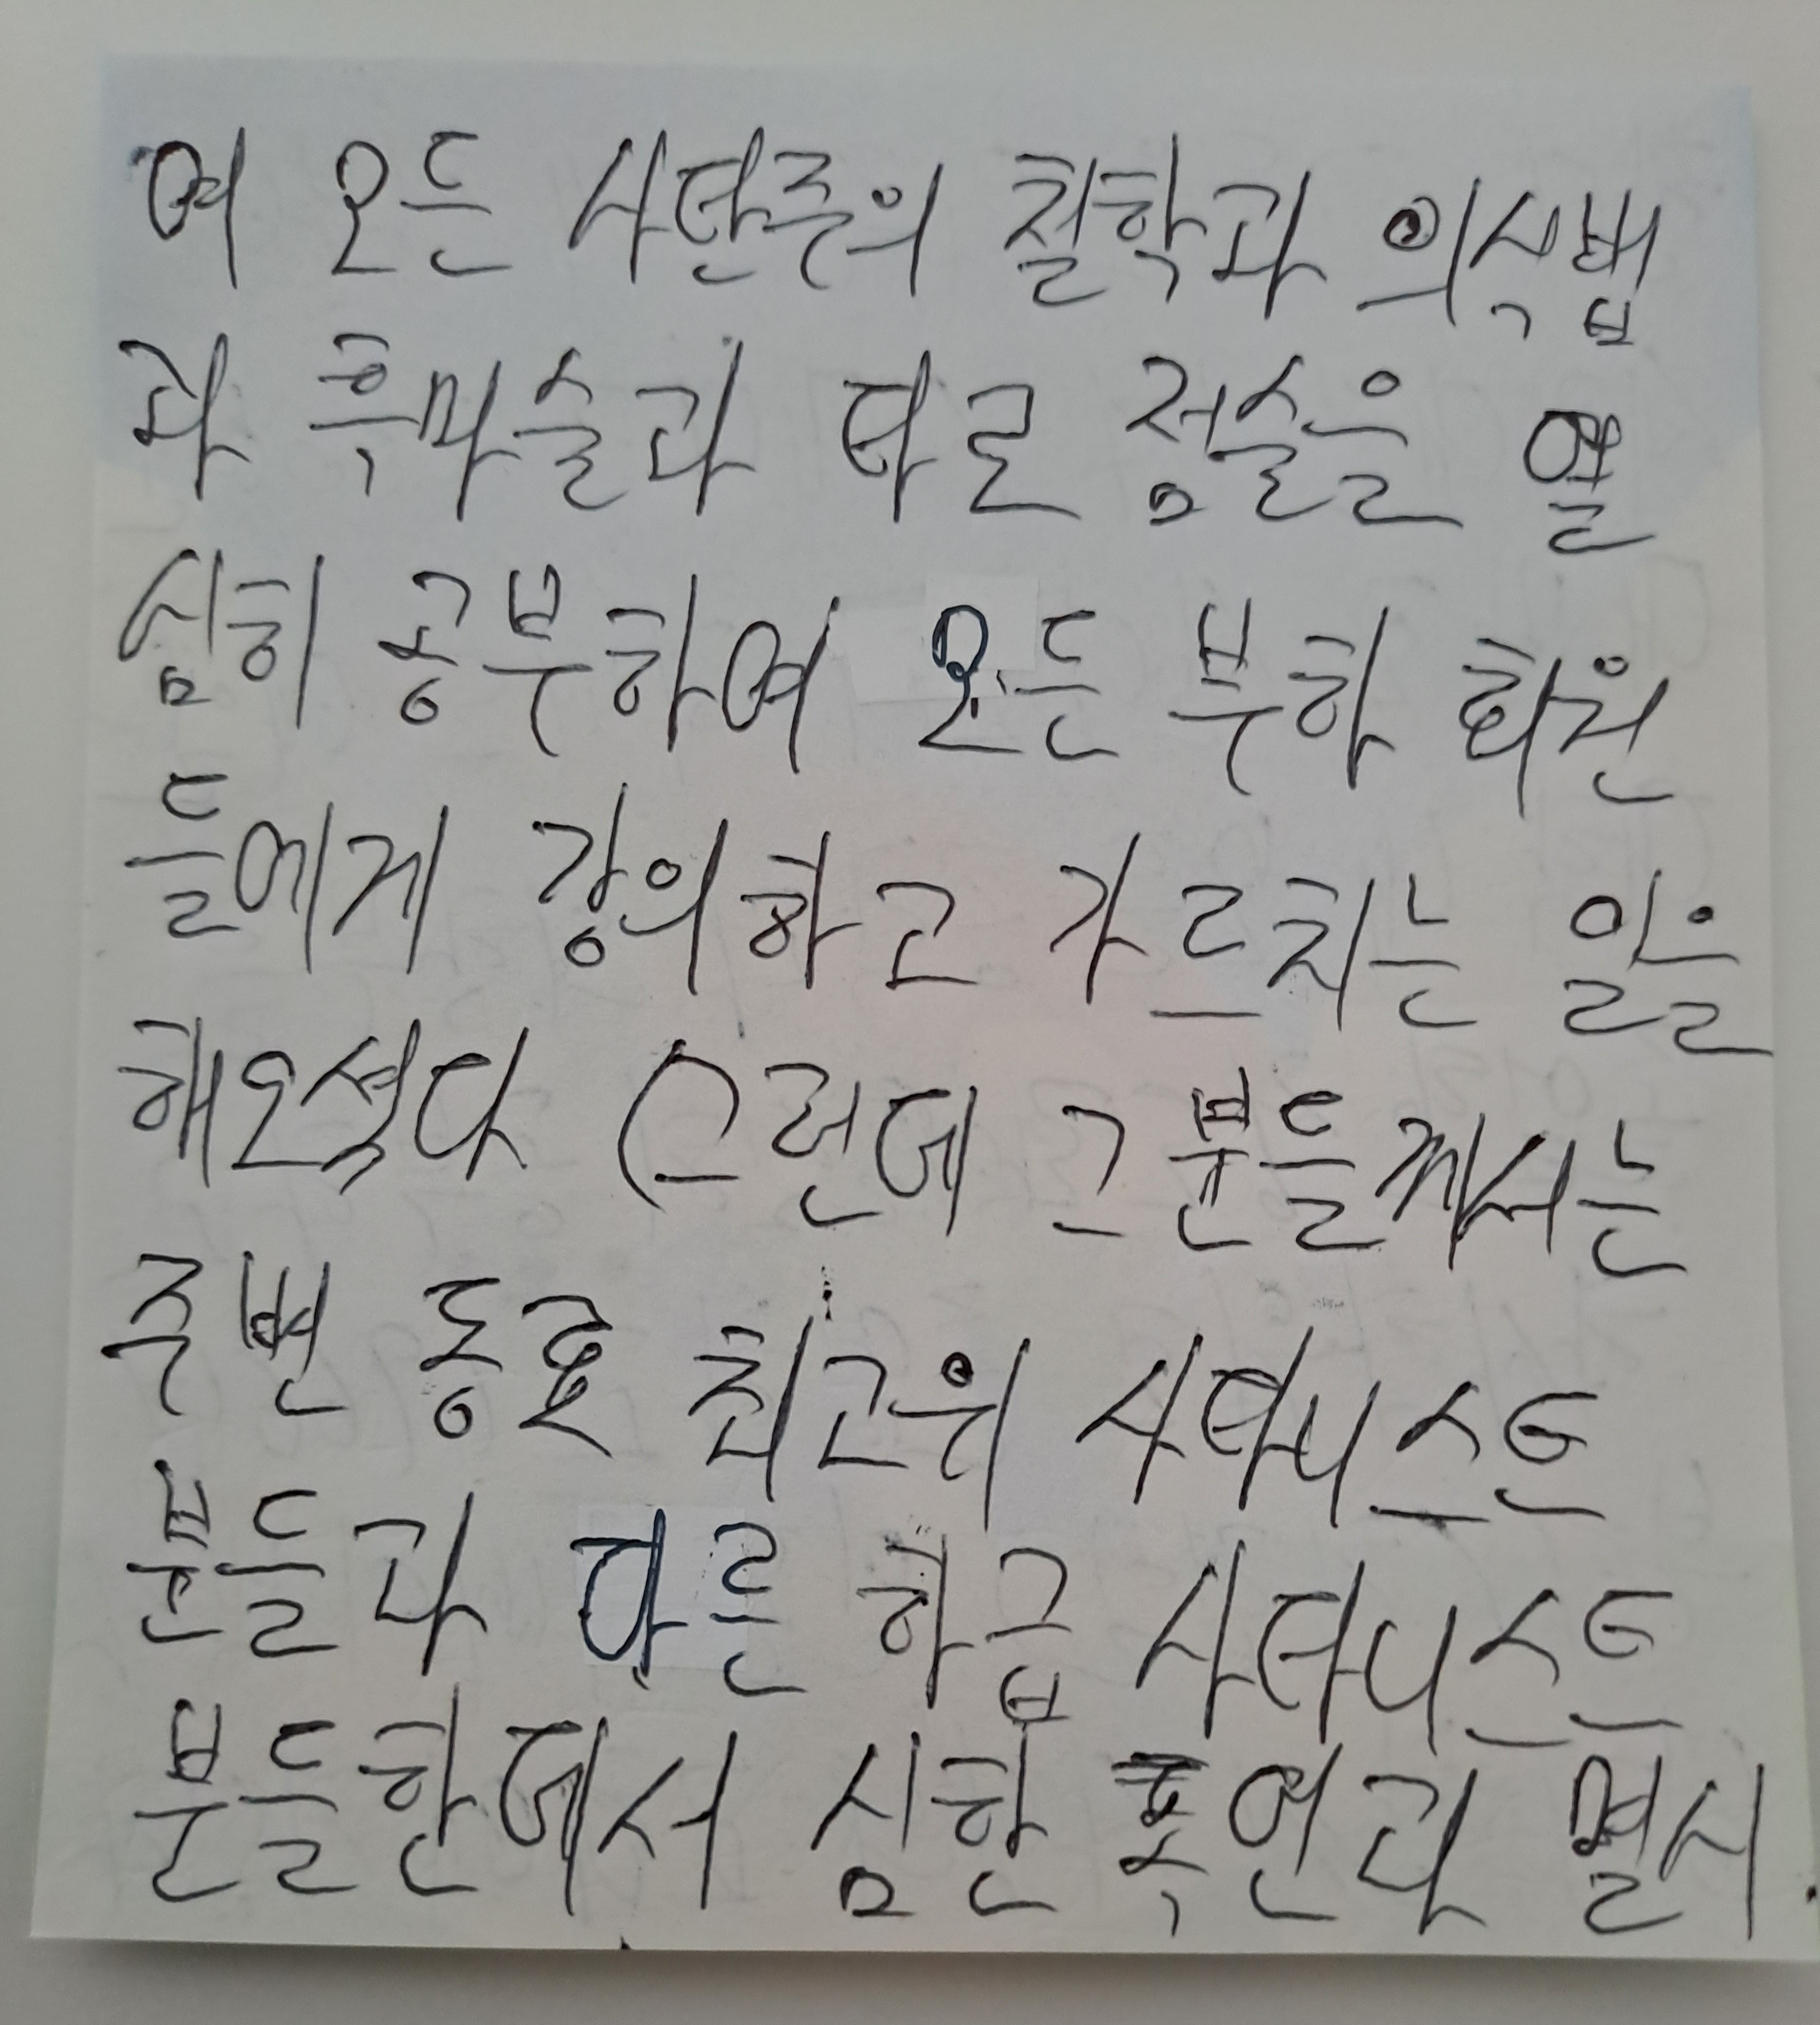 여 모든 사탄주의 철학과 의식법
과 흑마술과 타로 점술을 열
심히 공부하여 모든 부하 회원
들에게 강의하고 가르치는 일을
해오셨다 (그런데 그분들께서는
주변 동료 최고위 사타니스트
분들과 다른 하급 사타니스트
분들한테서 심한 폭언과 멸시